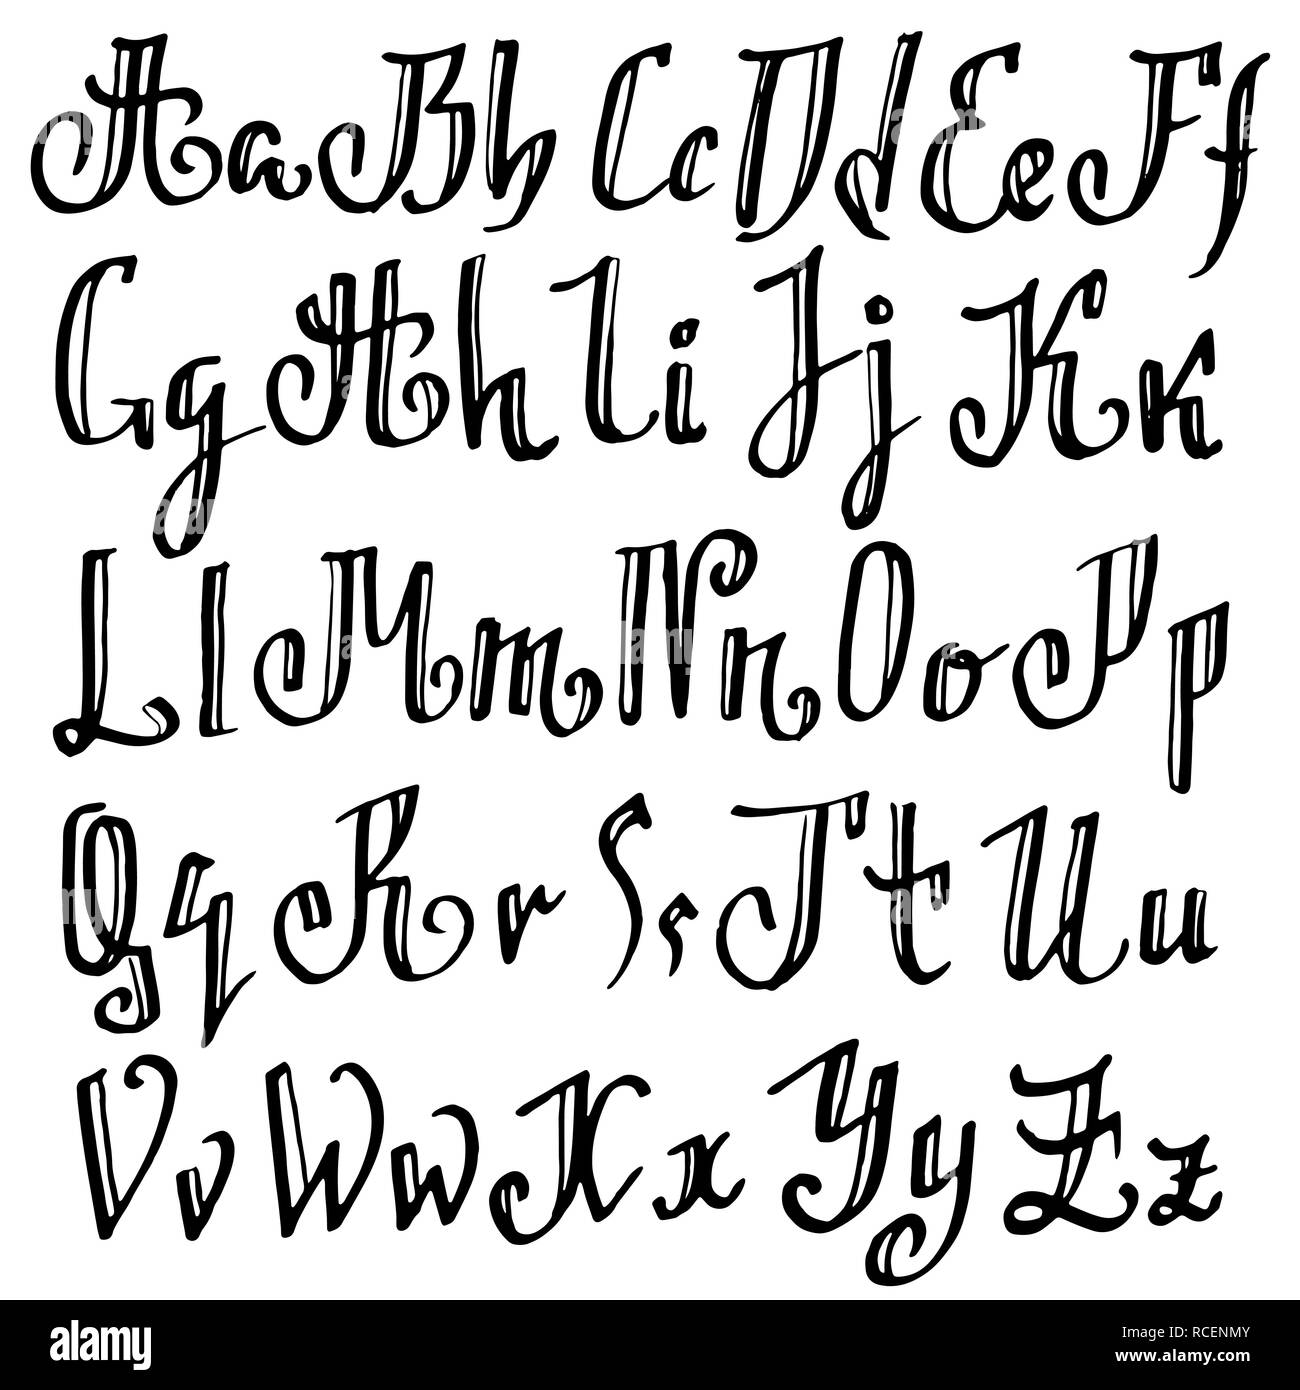 Aa Bb Cc Dd Ee Ff
Gg Hh Ii Jj Kk
Ll Mm Nn Oo Pp
Qq Rr Ss Tt Uu
Vv Ww Xx Yy Zz
alamy
Image ID: RCENMY
www.alamy.com